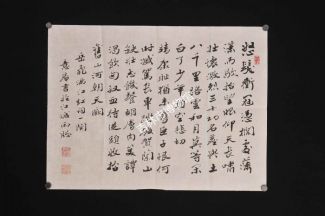 怒髮衝冠憑欄處瀟
瀟雨歇抬望眼仰天長嘯
壯懷激烈三十功名塵與土
八千里路雲和月莫等閒
白了少年頭空悲切
靖康恥猶未雪臣子恨何
時滅駕長車踏破賀蘭山
缺壯志飢餐胡虜肉笑談
渴飲匈奴血待從頭收拾
舊山河朝天闕
岳飛滿江紅詞一闋
書於江